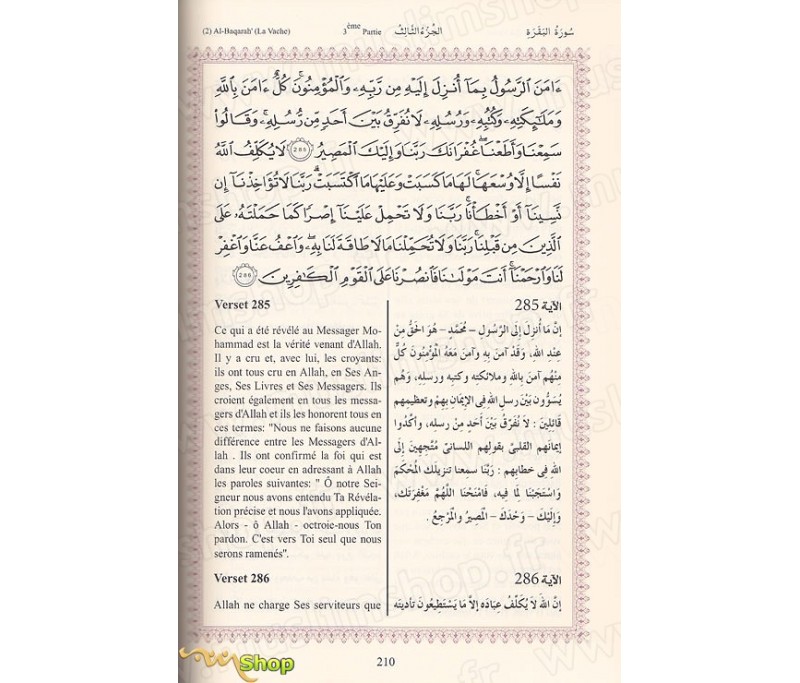 (2) Al-Baqarah' (La Vache) 3ème Partie الجُزءُ الثَّالِثُ سُورَةُ البَقَرَةِ
ءَامَنَ الرَّسُولُ بِمَآ أُنزِلَ إِلَيْهِ مِن رَّبِّهِۦ وَالْمُؤْمِنُونَ ۚ كُلٌّ ءَامَنَ بِاللَّهِ
وَمَلَٰٓئِكَتِهِۦ وَكُتُبِهِۦ وَرُسُلِهِۦ لَا نُفَرِّقُ بَيْنَ أَحَدٍ مِّن رُّسُلِهِۦ ۚ وَقَالُوا
سَمِعْنَا وَأَطَعْنَا ۖ غُفْرَانَكَ رَبَّنَا وَإِلَيْكَ الْمَصِيرُ 285 لَا يُكَلِّفُ اللَّهُ
نَفْسًا إِلَّا وُسْعَهَا ۚ لَهَا مَا كَسَبَتْ وَعَلَيْهَا مَا اكْتَسَبَتْ ۗ رَبَّنَا لَا تُؤَاخِذْنَآ إِن
نَّسِينَآ أَوْ أَخْطَأْنَا ۚ رَبَّنَا وَلَا تَحْمِلْ عَلَيْنَآ إِصْرًا كَمَا حَمَلْتَهُۥ عَلَى
الَّذِينَ مِن قَبْلِنَا ۚ رَبَّنَا وَلَا تُحَمِّلْنَا مَا لَا طَاقَةَ لَنَا بِهِۦ ۖ وَاعْفُ عَنَّا وَاغْفِرْ
لَنَا وَارْحَمْنَآ ۚ أَنتَ مَوْلَىٰنَا فَانصُرْنَا عَلَى الْقَوْمِ الْكَٰفِرِينَ 286
Verset 285
Ce qui a été révélé au Messager Mo-
hammad est la vérité venant d'Allah.
Il y a cru et, avec lui, les croyants:
ils ont tous cru en Allah, en Ses An-
ges, Ses Livres et Ses Messagers. Ils
croient également en tous les messa-
gers d'Allah et ils les honorent tous en
ces termes: "Nous ne faisons aucune
différence entre les Messagers d'Al-
lah . Ils ont confirmé la foi qui est
dans leur coeur en adressant à Allah
les paroles suivantes: " Ô notre Sei-
gneur nous avons entendu Ta Révéla-
tion précise et nous l'avons appliquée.
Alors - ô Allah - octroie-nous Ton
pardon. C'est vers Toi seul que nous
serons ramenés".
Verset 286
Allah ne charge Ses serviteurs que
الآية 285
إنَّ مَا أُنزِلَ إلَى الرَّسُولِ – مُحَمَّدٍ – هُوَ الحَقُّ مِنْ
عِندِ اللهِ، وَقَدْ آمَنَ بِهِ وَآمنَ مَعَهُ المُؤْمِنُونَ كُلٌّ
مِنْهُم آمنَ باللهِ وملائكته وكتبه ورسلِهِ، وَهُم
يُسَوُّونَ بَيْنَ رسلِ اللهِ في الإيمَانِ بِهِمْ وتعظيمهم
قائِلينَ : لاَ نُفَرِّقُ بَيْنَ أَحَدٍ مِنْ رسلِهِ، وأكَّدُوا
إيمانَهم القلبيَّ بقولهم اللسانيّ مُتَّجِهينَ إلَى
اللهِ فِي خطابِهم : رَبَّنَا سمِعنا تنزيلكَ المُحْكَمَ
وَاسْتَجَبْنَا لمَا فِيهِ، فَامْنَحْنَا اللَّهُمَّ مَغْفِرَتَكَ،
وَإلَيْكَ – وَحْدَكَ – المَصِيرُ والمَرْجعُ .
الآية 286
إنَّ اللهَ لاَ يُكَلِّفُ عِبَادَه إلاَّ مَا يَسْتَطِيعُونَ تأديتَه
210
Shop